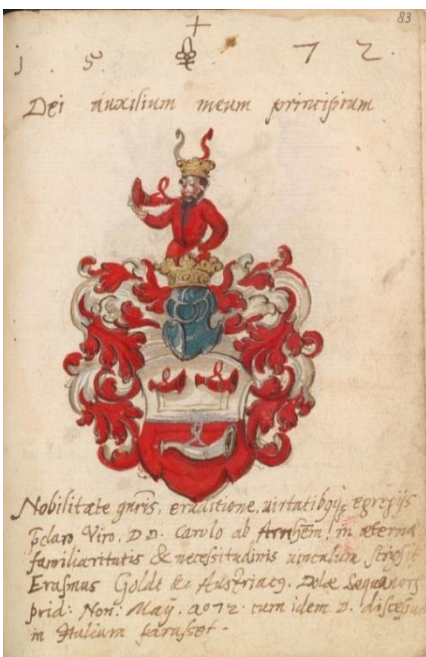 83
1 5 7 2.
Dei auxilium meum principium
Nobilitate gñris, eruditione, virtutibqz egregijs
p̃claro Viro, D D. Carolo ab in æternæ
familiaritatis & necessitudinis vinculum scripsit
Erasmus Goldt Austriacg. Dolæ
prid: Non: Maij. Ao 72. cum idem D. discessum
in Italiam parasset.